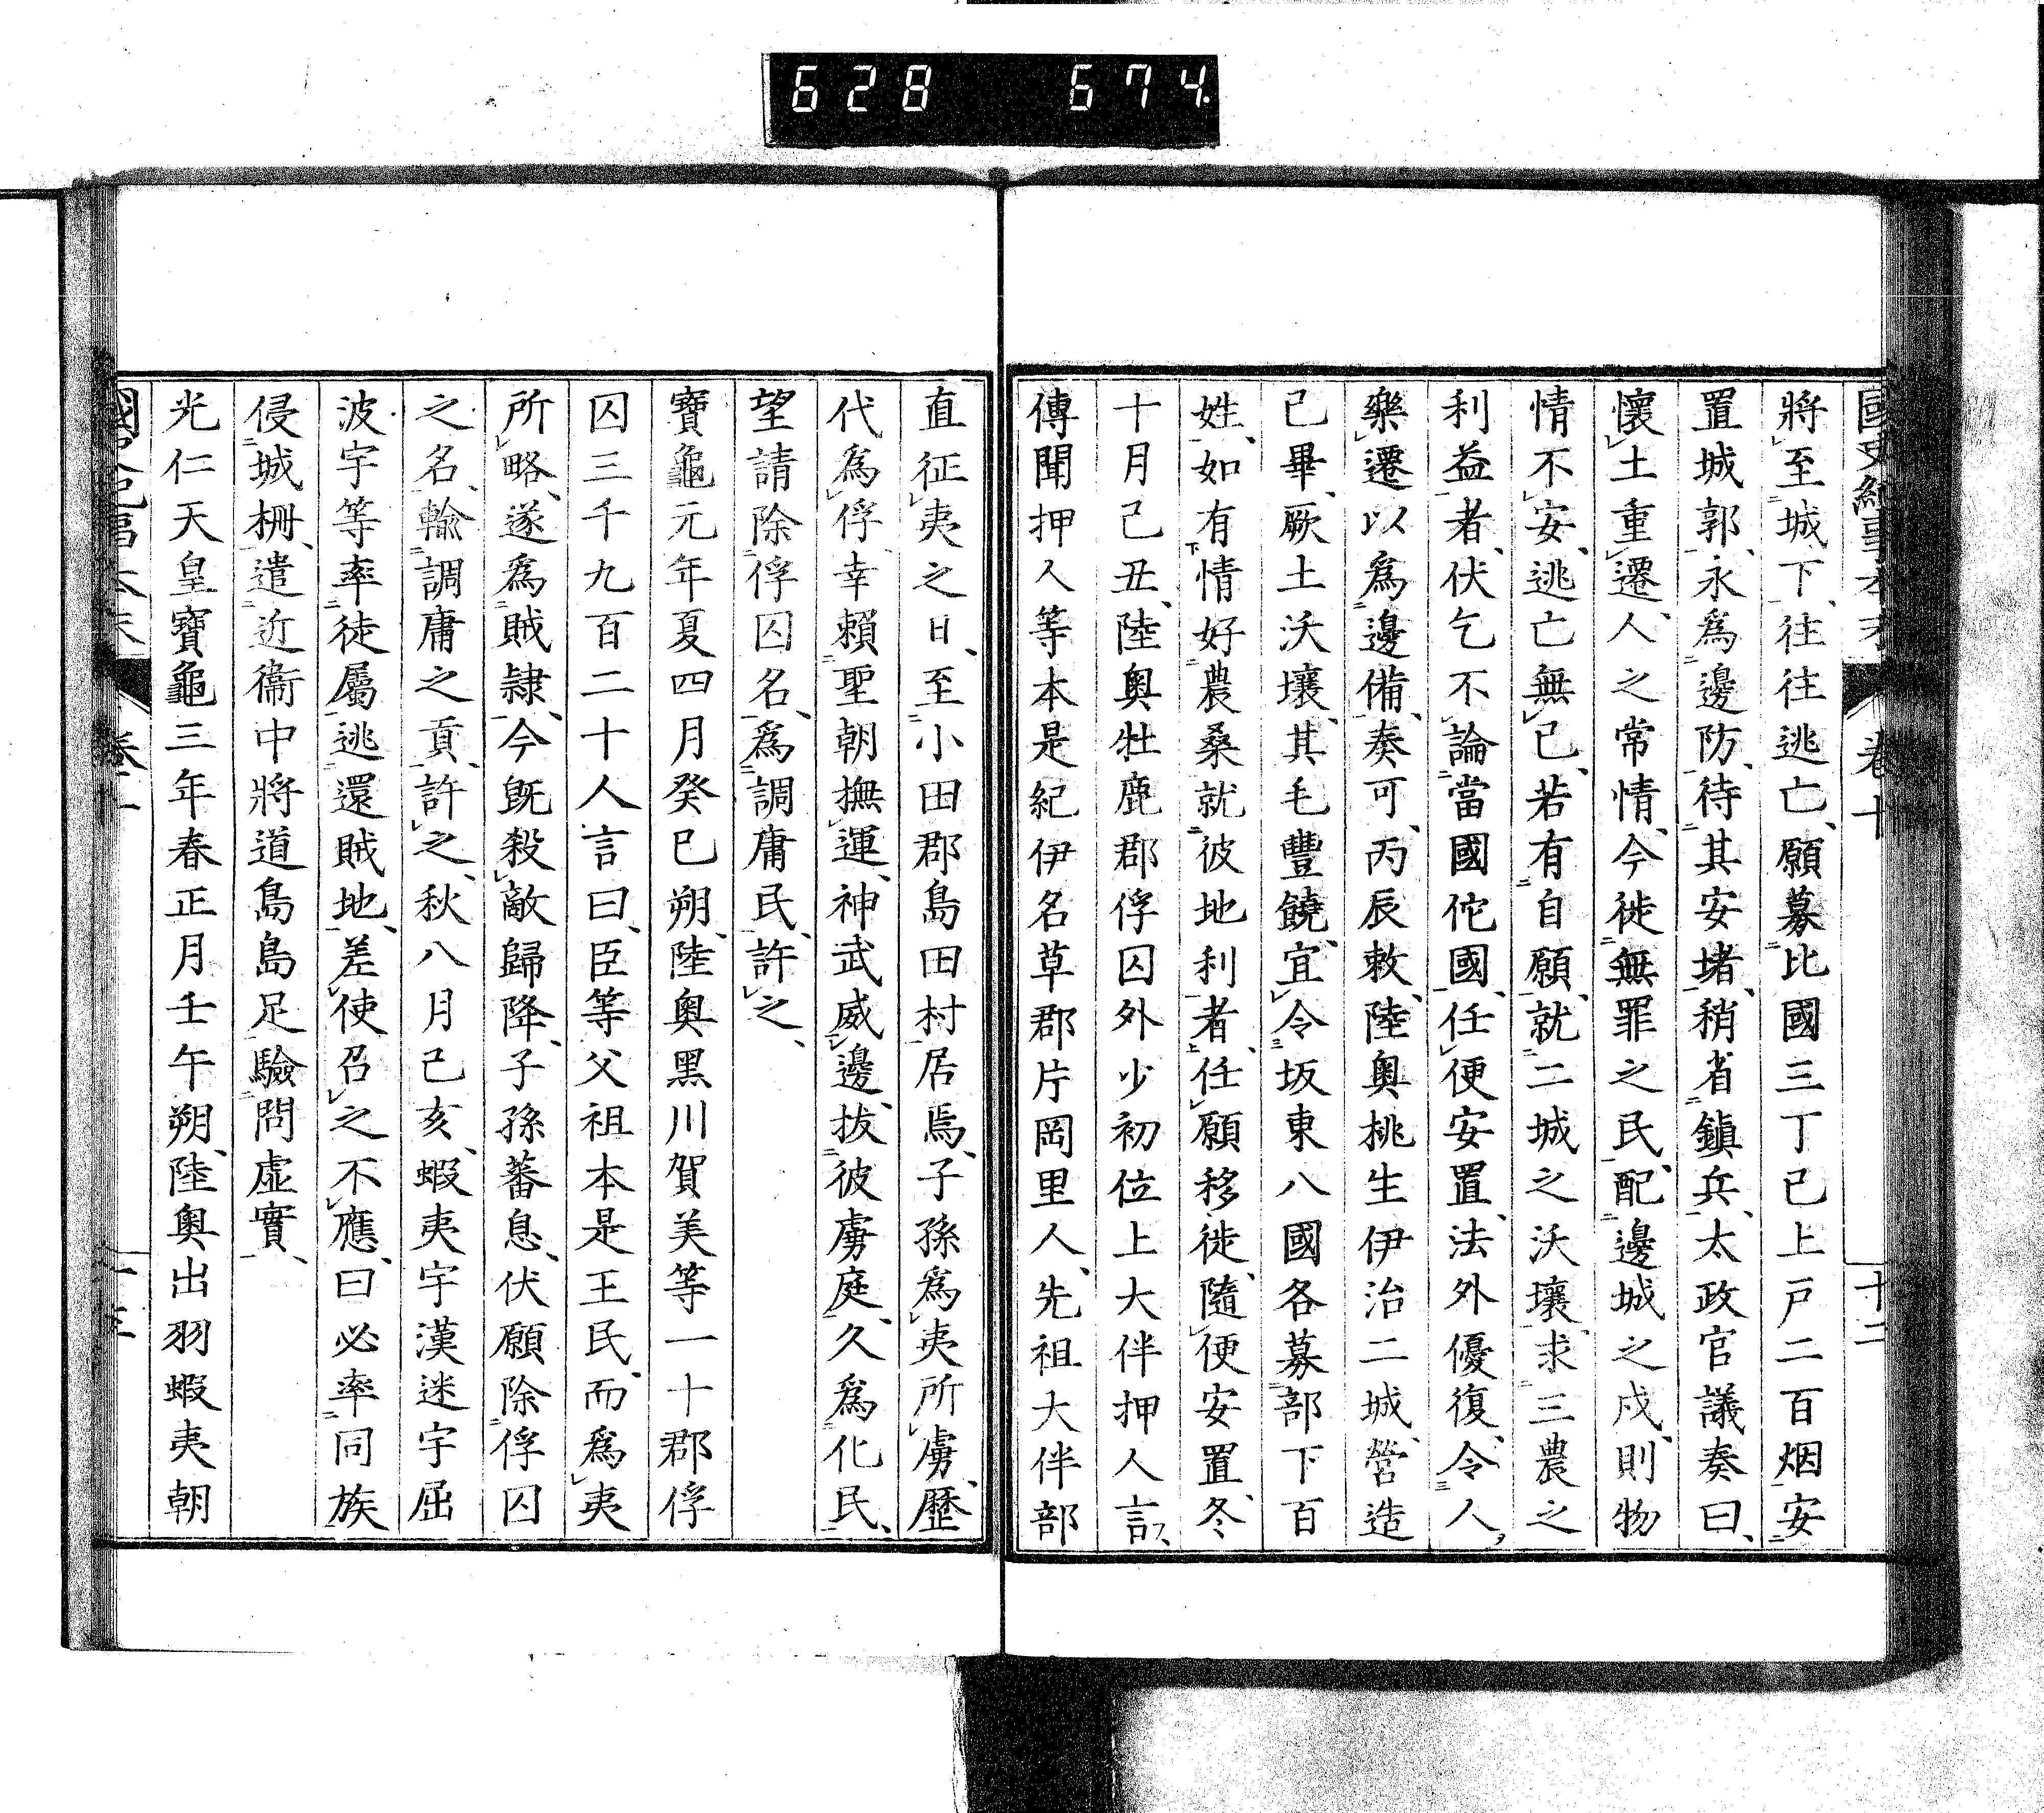 628 674
國史紀事本末 卷十 十二
將至城下、往往逃亡、願募比國三丁已上戸二百烟安
置城郭、永爲邊防、待其安堵、稍省鎭兵、太政官議奏曰、
懷土重遷、人之常情、今徙無罪之民、配邊城之戍、則物
情不安、逃亡無已、若有自願、就二城之沃壤、求三農之
利益者、伏乞不論當國佗國、任便安置、法外優復、令人
樂遷以爲邊備、奏可、丙辰敕、陸奥桃生伊治二城、營造
已畢、厥土沃壤、其毛豐饒、宜令坂東八國各募部下百
姓、如有情好農桑就彼地利者、任願移徙、隨便安置、冬
十月己丑、陸奥牡鹿郡俘囚外少初位上大伴押人言、
傳聞押人等本是紀伊名草郡片岡里人、先祖大伴部
直征夷之日、至小田郡島田村居焉、子孫爲夷所虜、歷
代爲俘、幸賴聖朝撫運、神武威邊、拔彼虜庭、久爲化民、
望請除俘囚名、爲調庸民、許之、
寶龜元年夏四月癸巳朔、陸奥黑川賀美等一十郡俘
囚三千九百二十人言曰、臣等父祖本是王民、而爲夷
所略、遂爲賊隷、今既殺敵歸降、子孫蕃息、伏願除俘囚
之名、輸調庸之貢、許之、秋八月己亥、蝦夷宇漢迷宇屈
波宇等率徒屬逃還賊地、差使召之不應、曰必率同族
侵城柵、遣近衞中將道島島足驗問虚實、
光仁天皇寶龜三年春正月壬午朔、陸奥出羽蝦夷朝